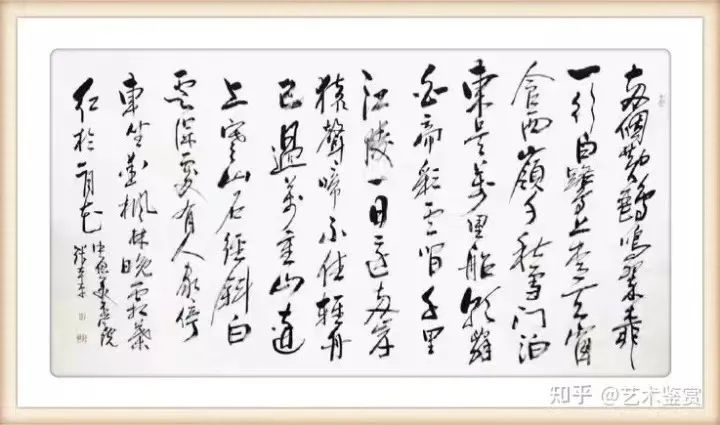 两個黄鸝鳴翠柳
一行白鷺上青天窗
含西嶺千秋雪門泊
東吴萬里船朝辭
白帝彩雲間千里
江陵一日還两岸
猿聲啼不住輕舟
已過萬重山遠
上寒山石徑斜白
雲深處有人家停
車坐愛楓林晚霜葉
红於二月花
知乎 @艺术鉴赏